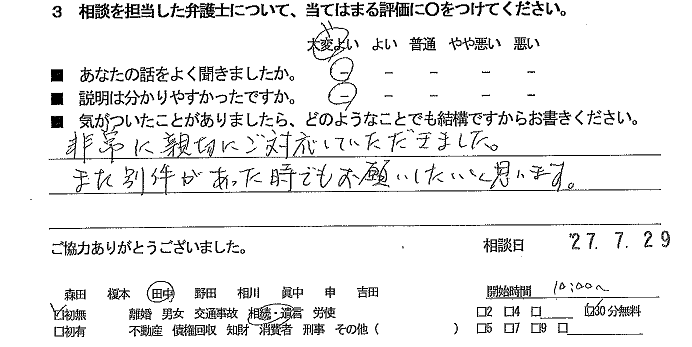 3 相談を担当した弁護士について、当てはまる評価に○をつけてください。
大変よい よい 普通 やや悪い 悪い
■ あなたの話をよく聞きましたか。 － － － － －
■ 説明は分かりやすかったですか。 － － － － －
■ 気がついたことがありましたら、どのようなことでも結構ですからお書きください。
非常に親切にご対応していただきました。
また別件があった時でもお願いしたいと思います。
ご協力ありがとうございました。 相談日 '27.7.29
森田 榎本 田中 野田 相川 眞中 申 吉田 開始時間 10:00～
☑初無 離婚 男女 交通事故 相続・遺言 労使 □2 □4 □ ☑30分無料
□初有 不動産 債権回収 知財 消費者 刑事 その他( ) □5 □7 □9 □